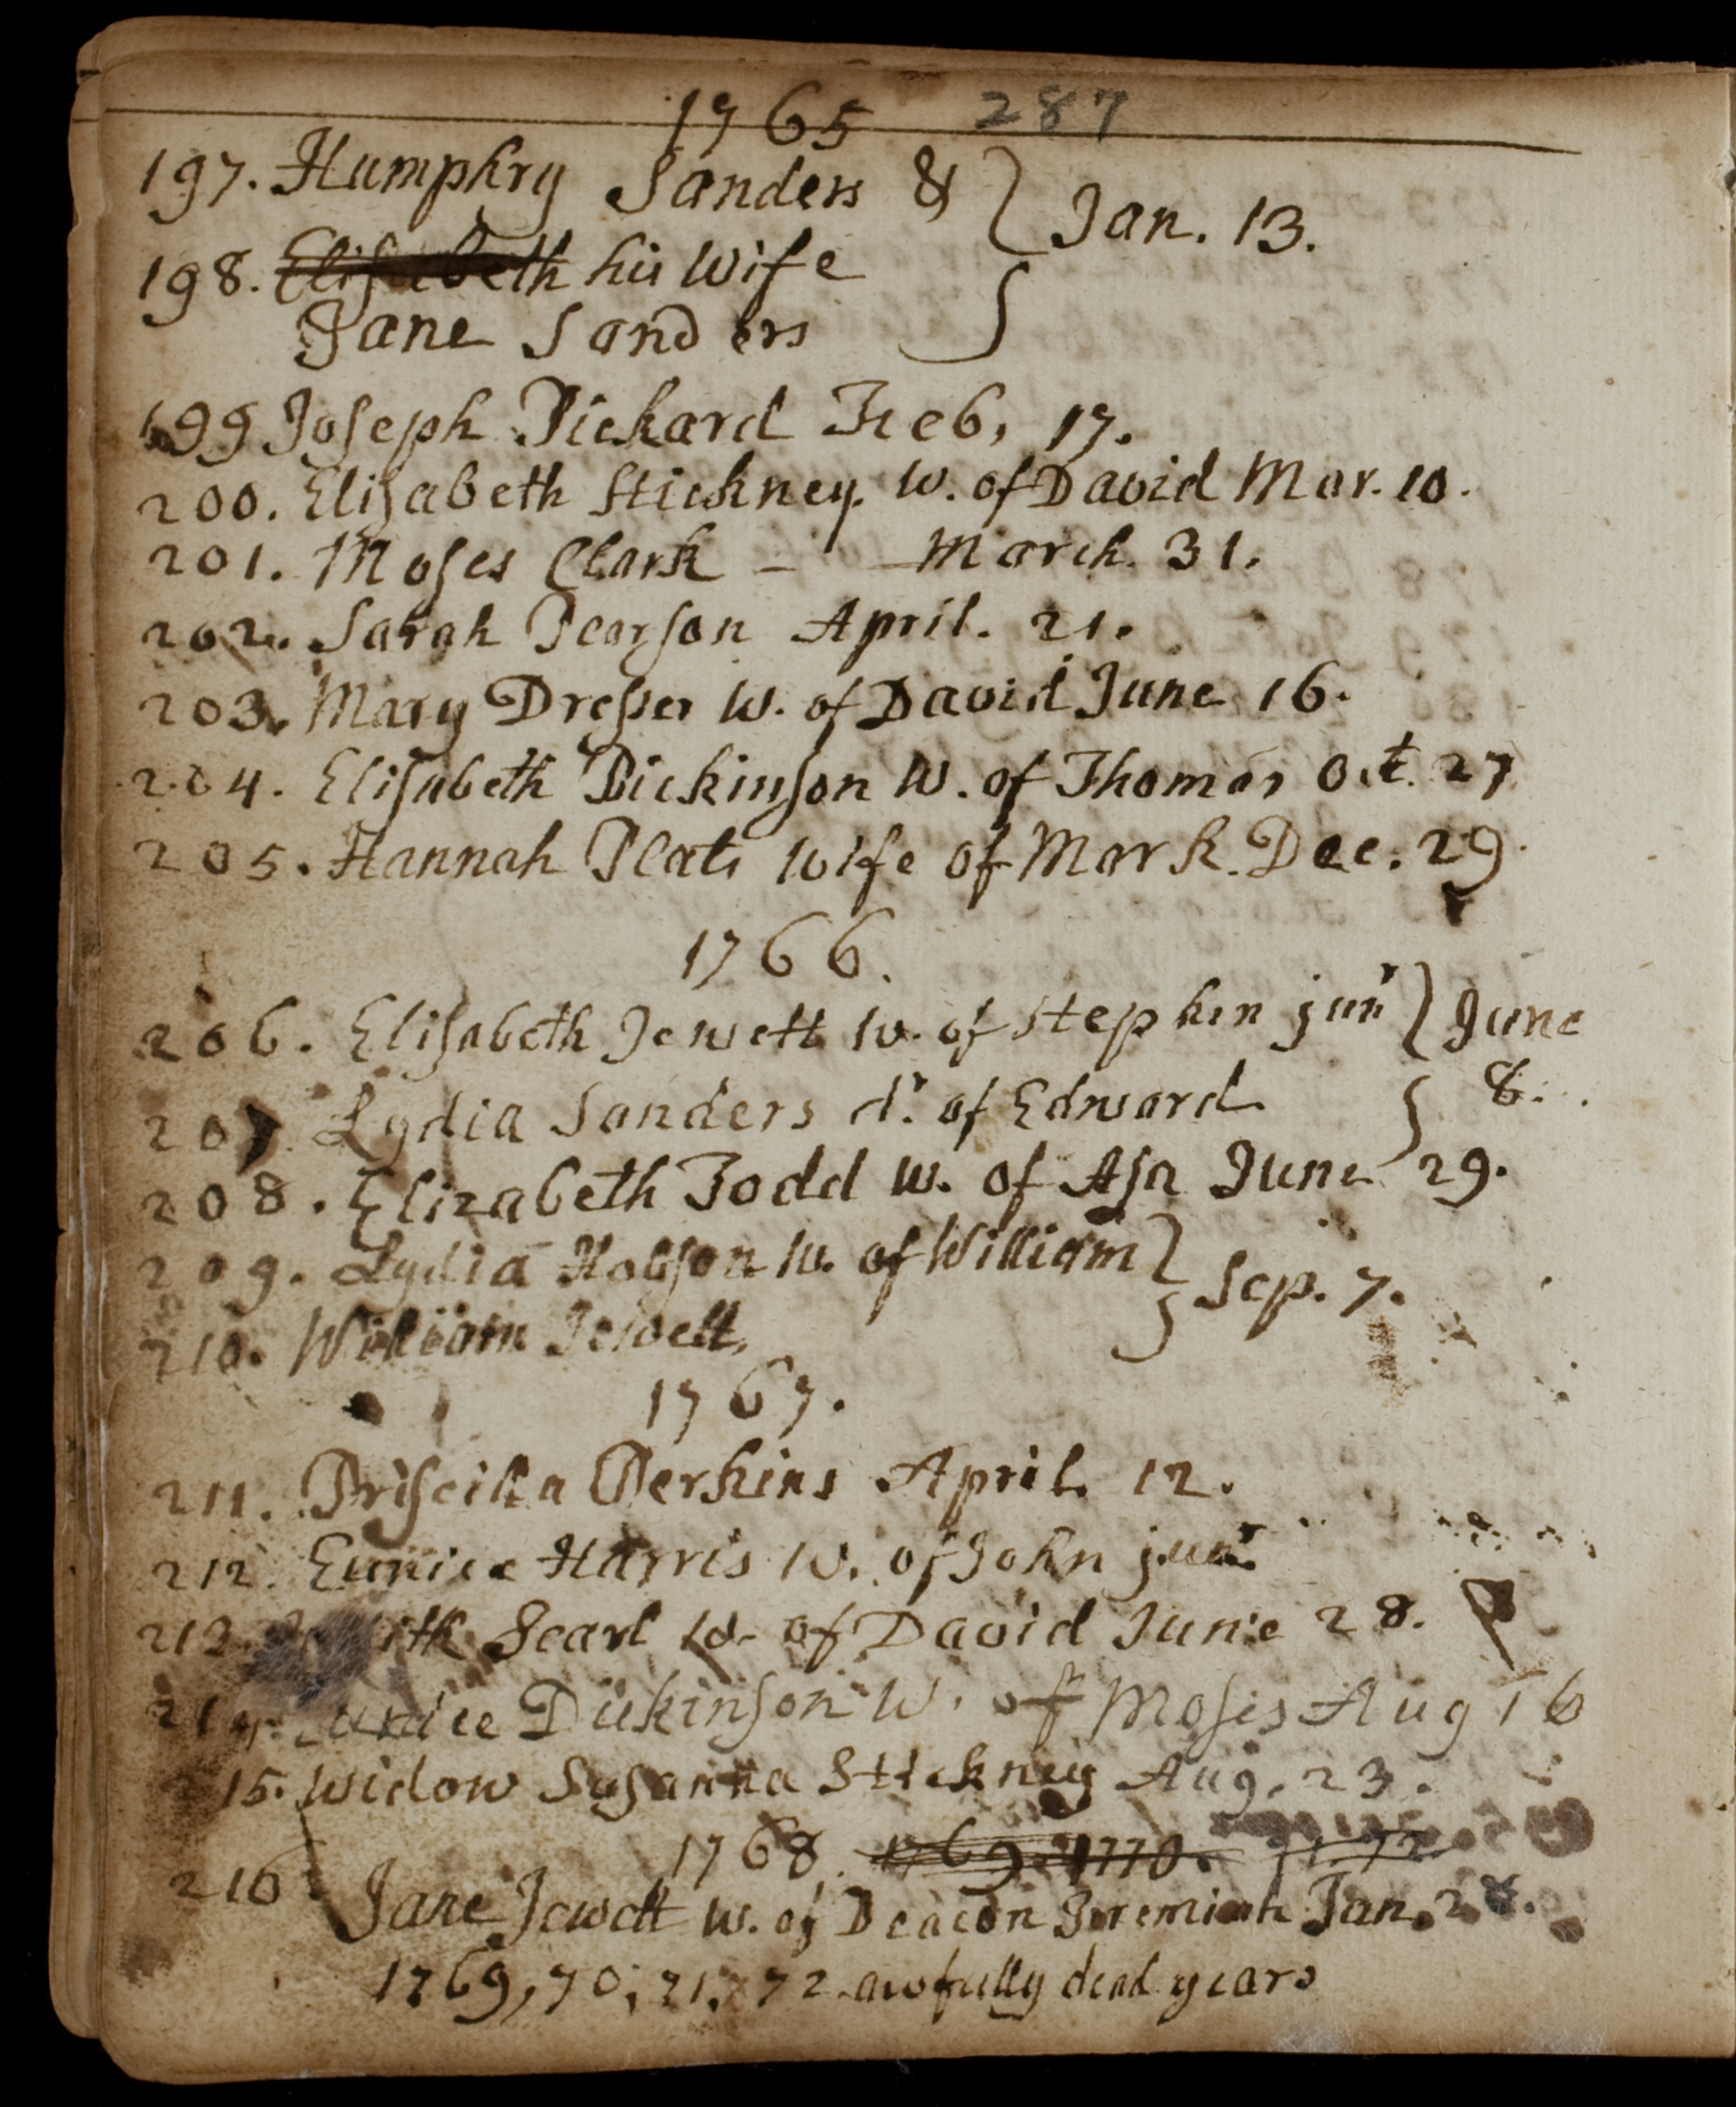 1765 287
197. Humphry Sanders & } Jan. 13.
198. Elisabeth his wife
Jane Sanders
199 Joseph Pickard Feb, 17.
200. Elisabeth Stickney. w. of David Mar. 10.
201. Moses Clark – – March. 31.
202. Sarah Pearson April. 21.
203. Mary Dresser w. of David June 16.
204. Elisabeth Dickinson w. of Thomas Oct. 27
205. Hannah Plats wife of Mark. Dec. 29.
1766.
206. Elisabeth Jewett w. of Stephen junr } June
207 Lydia Sanders dr. of Edward. 8.
208. Elizabeth Todd w. of Asa June 29.
209. Lydia Hobson w. of William } Sep. 7.
210. William Jewett,
1767.
211. Priscilla Perkins April. 12.
212. Eunice Harris w. of John junr.
213. Searl w. of David June 28.
214. Dickinson w. of Moses Aug 16
215. Widow Susanna Stickney Aug. 23.
1768. 1769. 1770. 71. 72
216 Jane Jewett w. of Deacon Jeremiah Jan. 28.
1769, 70, 71, 72 awfully dead years